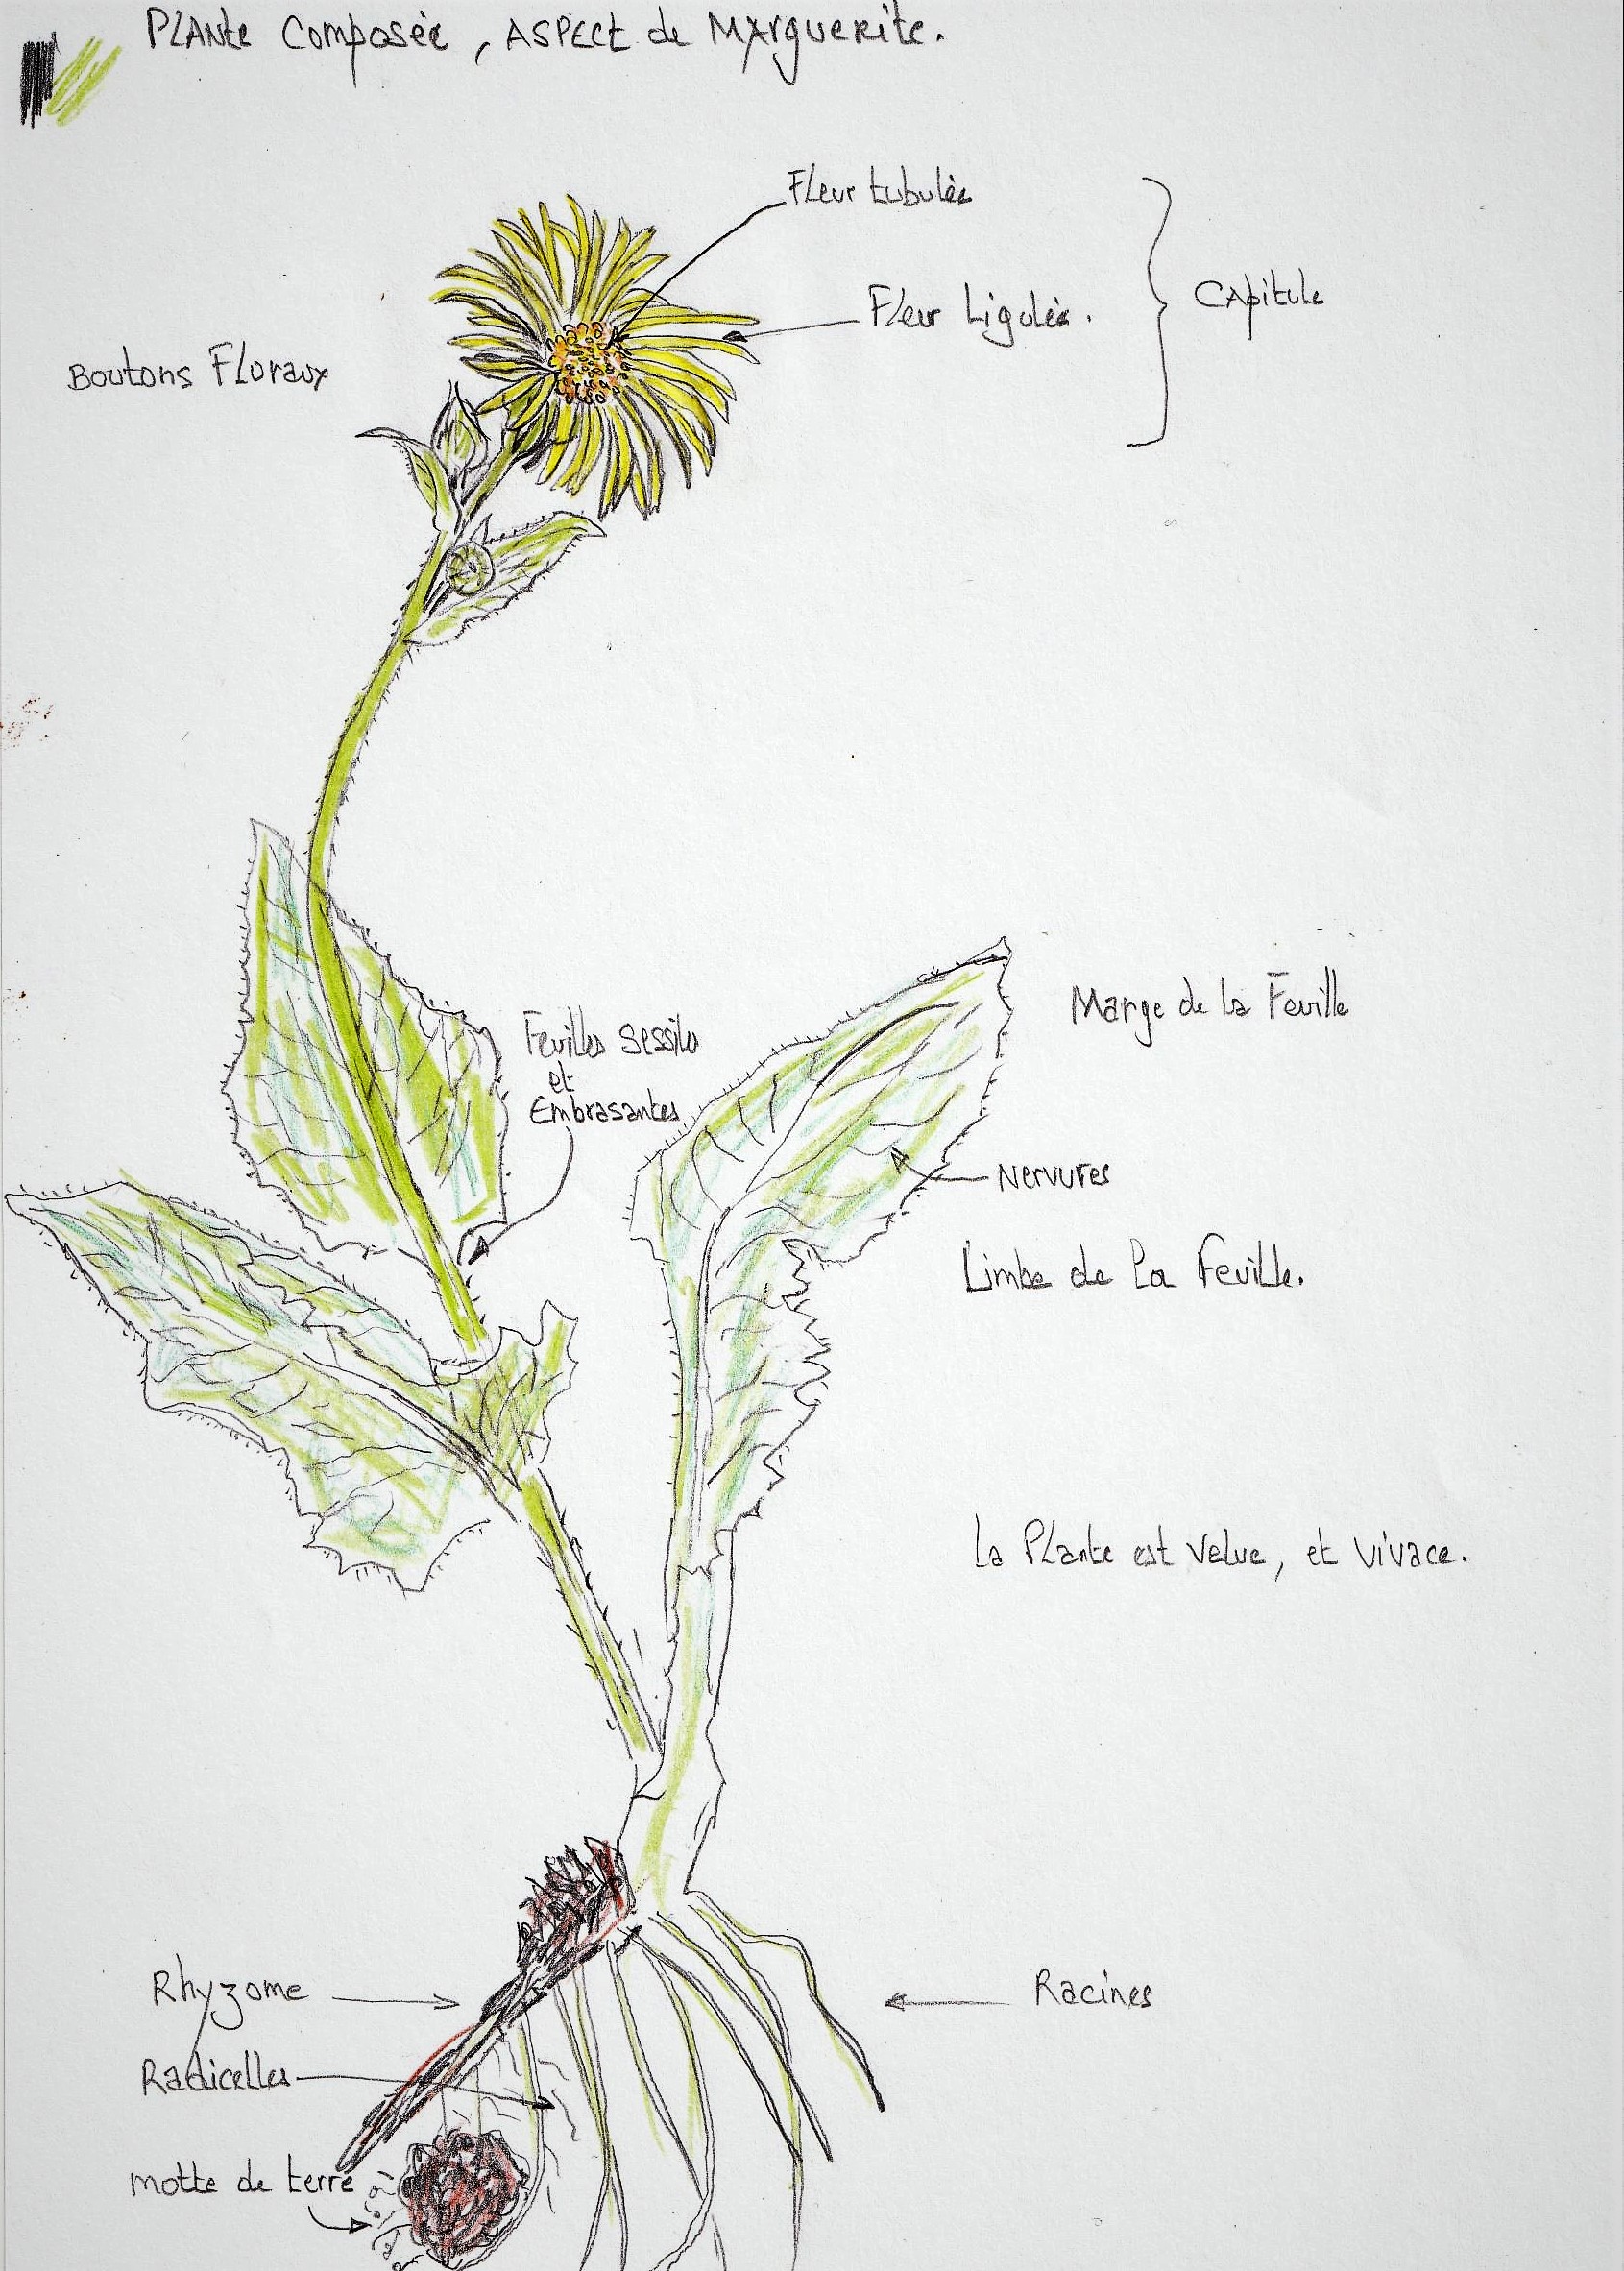 PLANte Composée, ASPECt de MArguerite.
Fleur tubulée
Fleur Ligulée.
CApitule
Boutons Floraux
Marge de la Feuille
Feuilles Sessiles
et
Embrasantes
Nervures
Limbe de la Feuille.
La Plante est Velue, et vivace.
Rhyzome
Racines
Radicelles
motte de terre